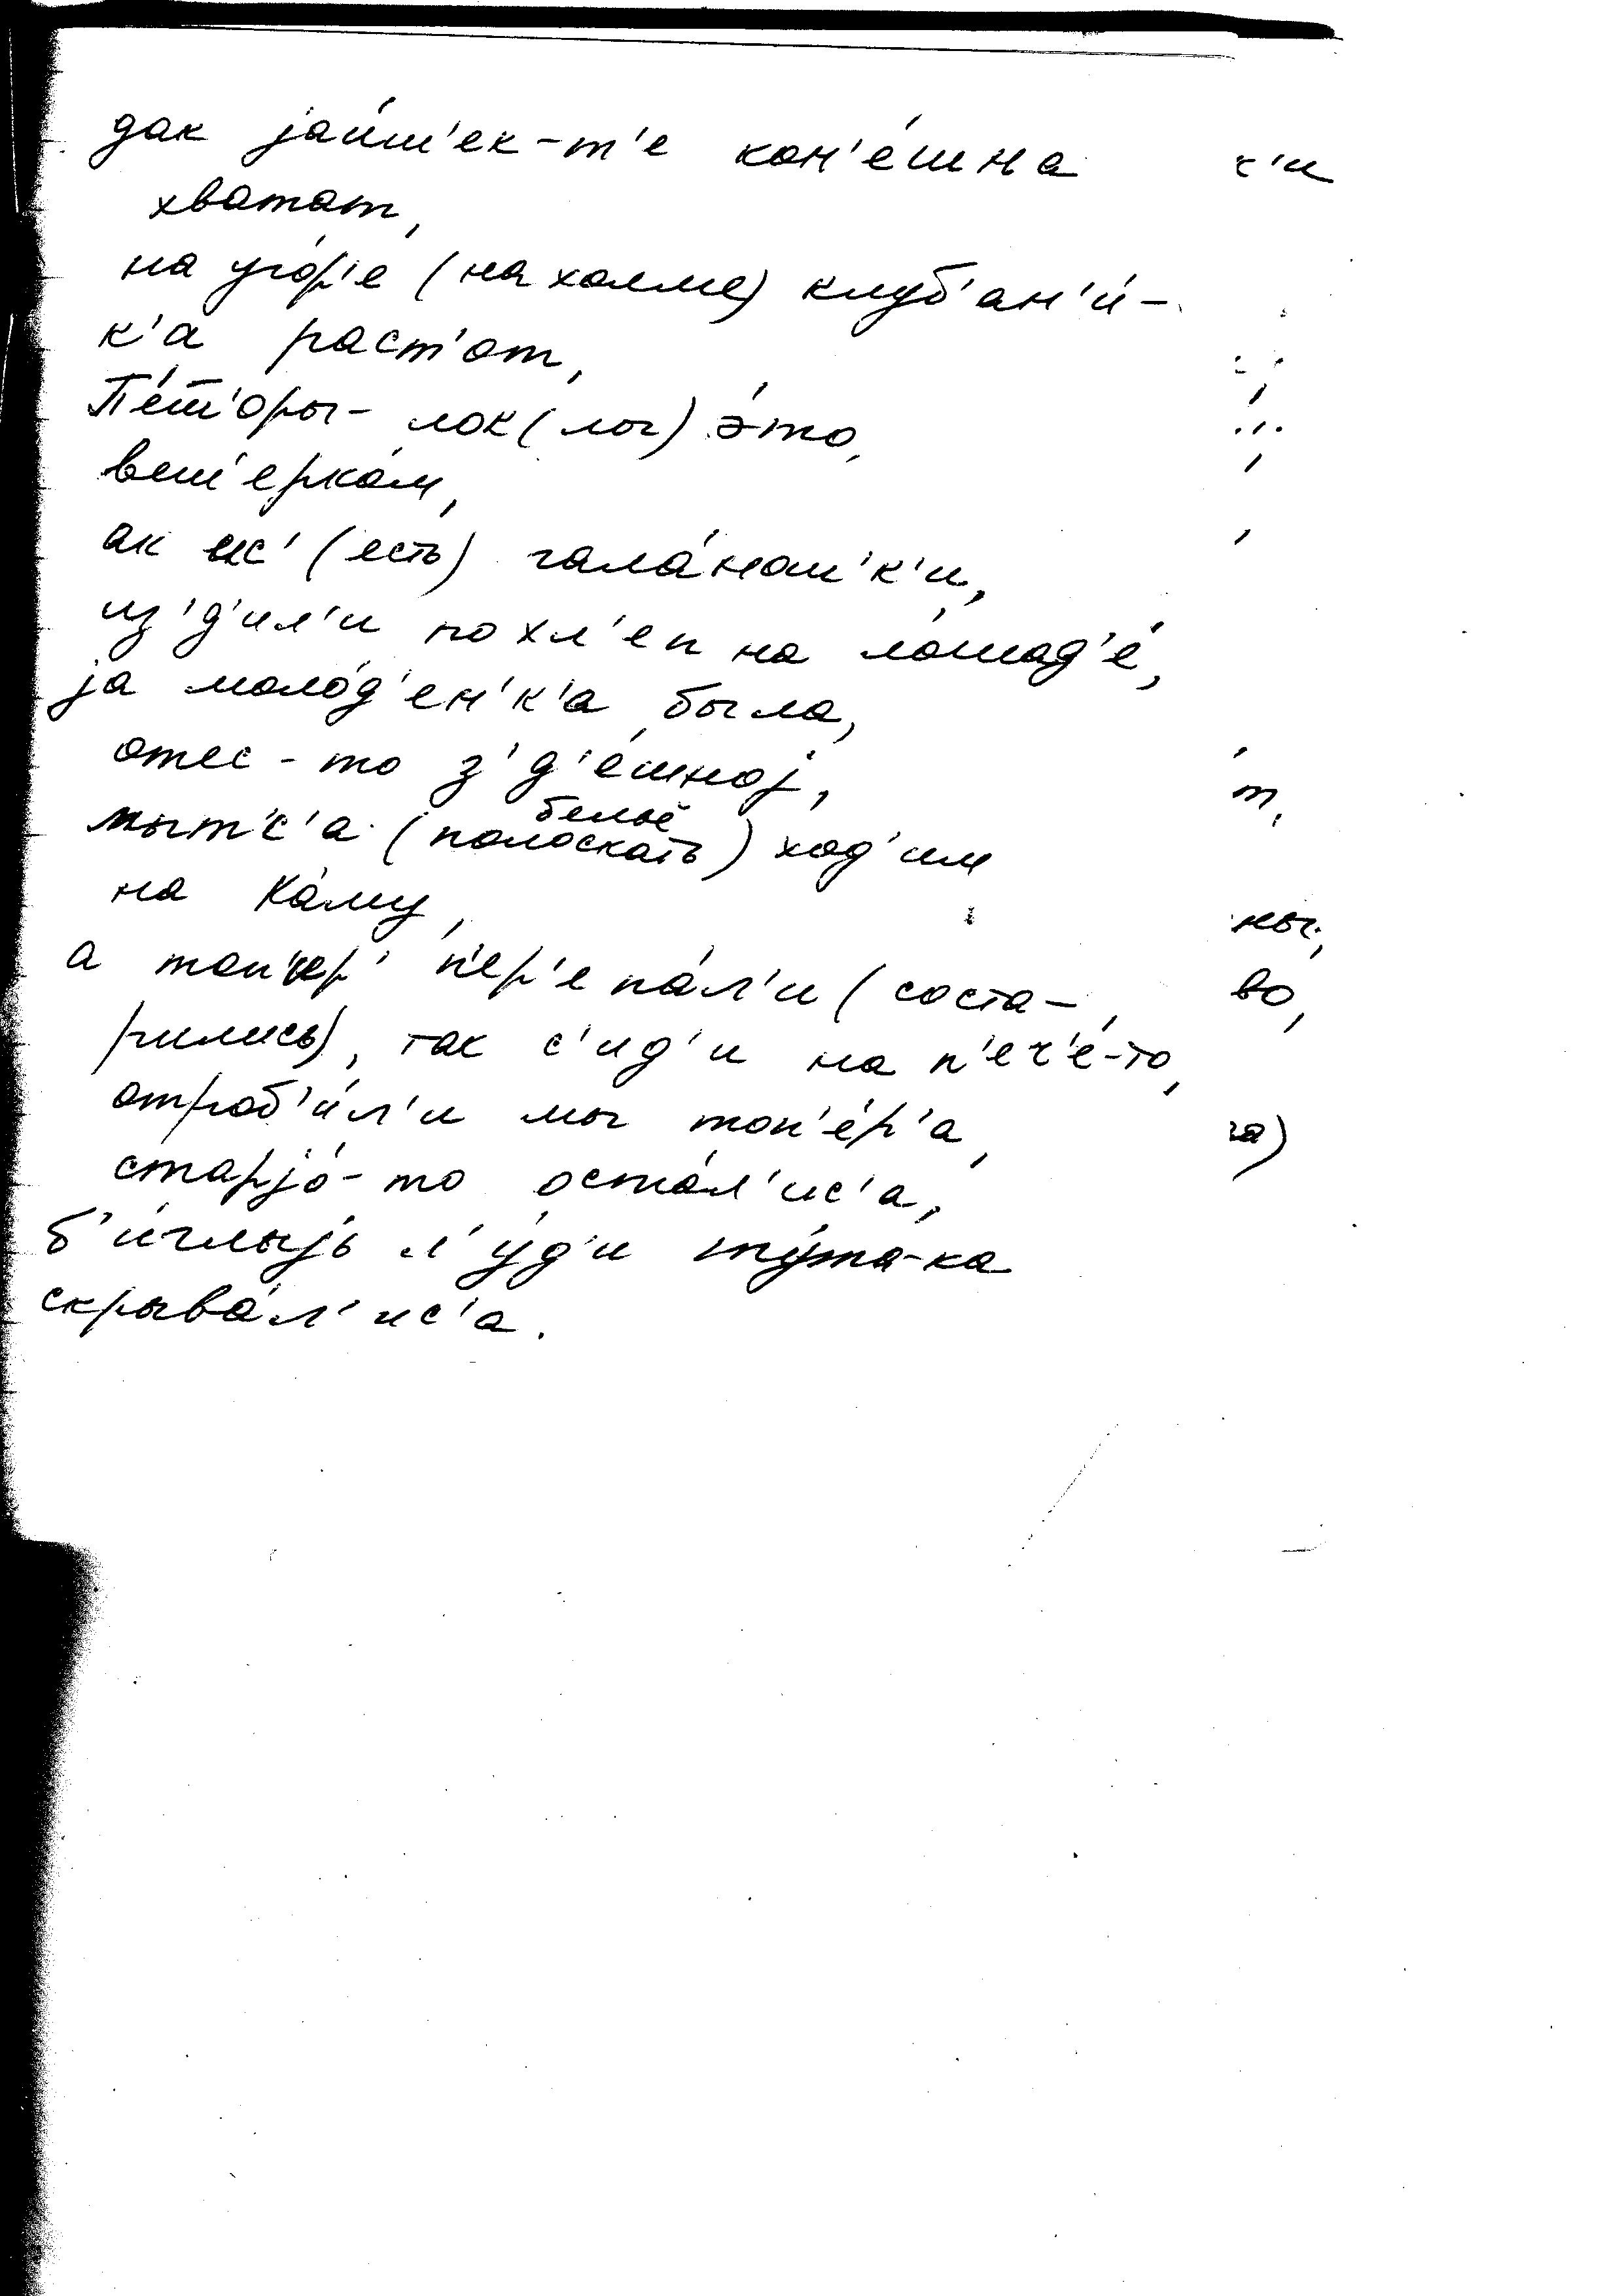 дак jаи́ш'ек-т'е кон'е́шна
хватат,
на уго́р'е (на холме) клуб'ан'и́-
к'а раст'от,
Пе́ш'оры- лок (лог) э́то,
веш'ерка́м,
ак ис' (есть) гала́наш'к'и,
из'д'ил'и по хл'еп на ло́шад'е́,
jа моло́д'ен'к'а была,
отес-то з'д'е́шноj,
мытс'а (полоскать бельё) ход'им
на Ка́му,
а топ'ер' п'ер'епа́л'и (соста-
рились), так с'ид'и на п'еч'е́-то,
отроб'и́л'и мы топ'е́р'а,
старjо́-то оста́л'ис'а,
б'и́глыjь л'у́д'и ту́та-ка
скрыва́л'ис'а.
к'и
т,
ны,
во,
га)